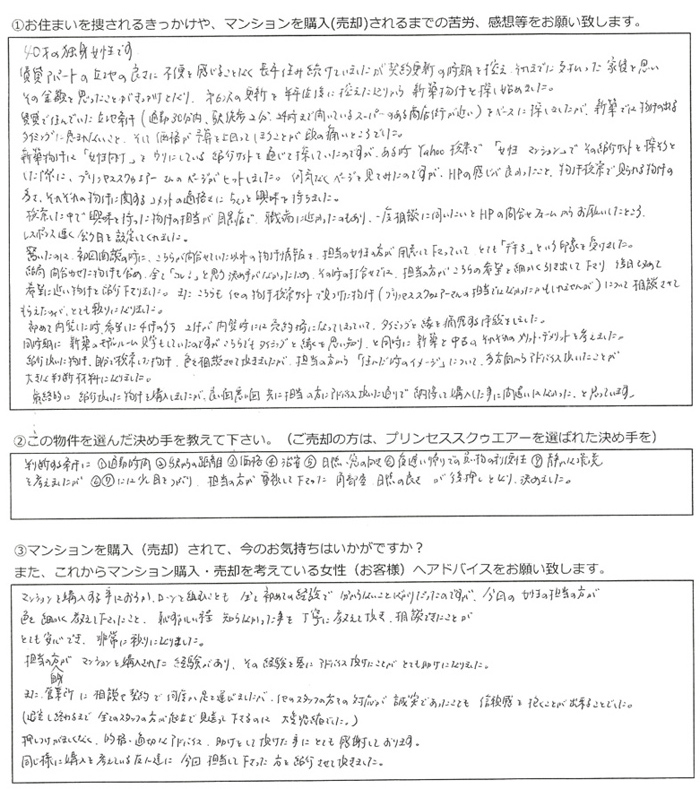 ①お住まいを捜されるきっかけや、マンションを購入(売却)されるまでの苦労、感想等をお願い致します。
40才の独身女性です
賃貸アパートの立地の良さに不便を感じることなく長年住み続けていましたが契約更新の時期を控え、それまでに支払った家賃を思い
その金額を思ったことがきっかけとなり、
の更新を半年後に控えた
から新築物件を探し始めました。
賃貸で住んでいた
条件(通勤30分内、駅徒歩2分、
時まで開いているスーパーのある商店街が近い)をベースに探しましたが、新築では物件の出る
タイミングに恵まれないこと、そして価格が予算を上回ってしまうことが
の痛いところでした。
新築物件は「女性向け」をウリにしている紹介サイトを通じて探していたのですが、ある時Yahoo検索で「女性 マンション」でその紹介サイトを探そうと
した際に、プリンセススクゥエアーさんのページがヒットしました。何気なくページを見てみたのですが、HPの感じが良かったこと、物件検索で見られる物件の
多さ、それぞれの物件に関するコメントの適格さにちょっと興味を持ちました。
検索した中で興味を持った物件の担当が目黒店で、職場に近かったのもあり、一度相談に伺いたいとHPの問合せフォームからお願いしたところ、
レスポンス速く会う日を設定してくれました。
驚いたのは、初回面談の時に、こちらが問合せていた以外の物件情報を、担当の女性の方が用意して下さっていて、とても「デキる」という印象を受けました。
結局問合せた物件も含め、全て「コレ!」と思う決め手がなかったため、その時の打合せでは、担当の方がこちらの希望を細かく引き出して下さり、後日改めて
希望に近い物件を紹介下さいました。またこちらも他の物件検索サイトで見つけた物件(プリンセススクゥエアーさんの担当ではなかったかもしれませんが)について相談させて
もらえたのが、とても救りになりました。
初めて内覧した時、希望した条件の
物件が内覧時には売約済になってしまっていて、タイミングと縁を痛感する経験をしました。
同時期に新築のモデルルーム見学もしていたのですがこちらでもタイミングと縁を思い知り、と同時に新築と中古のそれぞれのメリット・デメリットを考えました。
紹介頂いた物件、自分で検索した物件、色々相談させて頂きましたが、担当の方から「住んだ時のイメージ」について、多方向からアドバイス頂いたことが
大きな判断材料になりました。
最終的に紹介頂いた物件を購入しましたが、良い面悪い面共に担当の方にアドバイス頂いた通りで納得して購入した事に間違いはなかった、と思っています。
②この物件を選んだ決め手を教えて下さい。（ご売却の方は、プリンセススクゥエアーを選ばれた決め手を）
判断する条件に ①通勤時間 ②駅からの距離 ③価格 ④治安 ⑤日照・窓の向き ⑥夜遅い帰りでの買い物の利便性 ⑦静かな環境
を考えましたが ⑥⑦には少し目をつぶり、担当の方が尊重して下さった 角部屋 日照の良さ が後押しとなり、決めました。
③マンションを購入（売却）されて、今のお気持ちはいかがですか？
また、これからマンション購入・売却を考えている女性（お客様）へアドバイスをお願い致します。
マンションを購入する事はおろか、ローンを組むことも全て初めての経験で分からないことばかりだったのですが、今回の女性の担当の方が
色々細かく教えて下さったこと、恥ずかしい程知らなかった事を丁寧に教えて頂き、相談できたことが
とても安心でき、非常に救りになりました。
担当の方自身がマンションを購入された経験があり、その経験を基にアドバイス頂けたことがとても助けになりました。
また、営業所に相談や契約で何度か足を運びましたが、他のスタッフの方々の対応が誠実であったことも信頼感を抱くことが出来ることでした。
(退室し終わるまで全てのスタッフの方が起立で見送って下さるのは
でした。)
押しつけがましくなく、的確・適切なアドバイス、助けとして頂けた事にとても感謝しております。
同じ様に購入を考えている友人達に今回担当して下さった方を紹介させて頂きました。